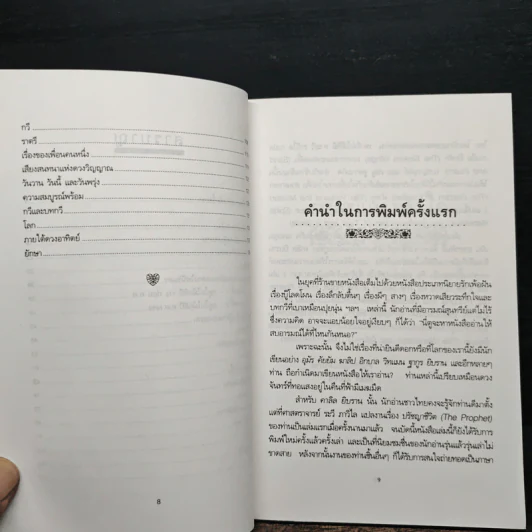 กวี
ราตรี
เรื่องของเพื่อนคนหนึ่ง
เสียงสนทนาแห่งดวงวิญญาณ
วันวาน วันนี้ และวันพรุ่ง
ความสมบูรณ์พร้อม
กวีและบทกวี
โลก
ภายใต้ดวงอาทิตย์
ยักษา
8
คำนำในการพิมพ์ครั้งแรก
ในยุคที่ร้านขายหนังสือเต็มไปด้วยหนังสือประเภทนิยายรักเพ้อฝัน
เรื่องบู๊โลดโผน เรื่องลึกลับตื่นๆ เรื่องผีๆ สางๆ เรื่องหวาดเสียวระทึกใจและ
บทกวีที่เบาเหมือนปุยนุ่น ฯลฯ เหล่านี้ นักอ่านที่มีอารมณ์สุนทรีย์แต่ไม่ไร้
ซึ่งความคิด อาจจะแอบน้อยใจอยู่เงียบๆ ก็ได้ว่า "นี่ดูจะหาหนังสืออ่านให้
สบอารมณ์ได้ที่ไหนกันหนอ?"
เพราะฉะนั้น จึงไม่ใช่เรื่องที่น่ายินดีดอกหรือที่โลกของเรานี้ยังมีนัก
เขียนอย่าง อุมัร คัยยัม ฆาลิป อิกบาล วิทแมน ฐากูร ยิบราน และอีกหลายๆ
ท่าน ถือกำเนิดมาเขียนหนังสือให้เราอ่าน? ท่านเหล่านี้เปรียบเหมือนดวง
จันทร์ที่ทอแสงอยู่ในคืนที่ฟ้ามีเมฆมืด
สำหรับ คาลิล ยิบราน นั้น นักอ่านชาวไทยคงจะรู้จักท่านดีมาตั้ง
แต่ที่ศาสตราจารย์ ระวี ภาวิไล แปลงานเรื่อง ปรัชญาชีวิต (The Prophet)
ของท่านเป็นเล่มแรกเมื่อครั้งนานมาแล้ว จนบัดนี้หนังสือเล่มนี้ก็ยังได้รับการ
พิมพ์ใหม่ครั้งแล้วครั้งเล่า และเป็นที่นิยมชมชื่นของนักอ่านรุ่นแล้วรุ่นเล่าไม่
ขาดสาย หลังจากนั้นงานของท่านชิ้นอื่นๆ ก็ได้รับการสนใจถ่ายทอดเป็นภาษา
9